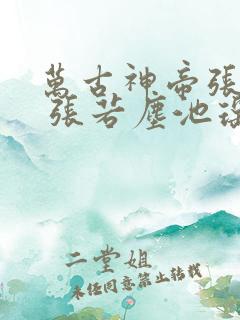 萬古神帝張
張若塵池
二堂姐
未经同意禁止转载